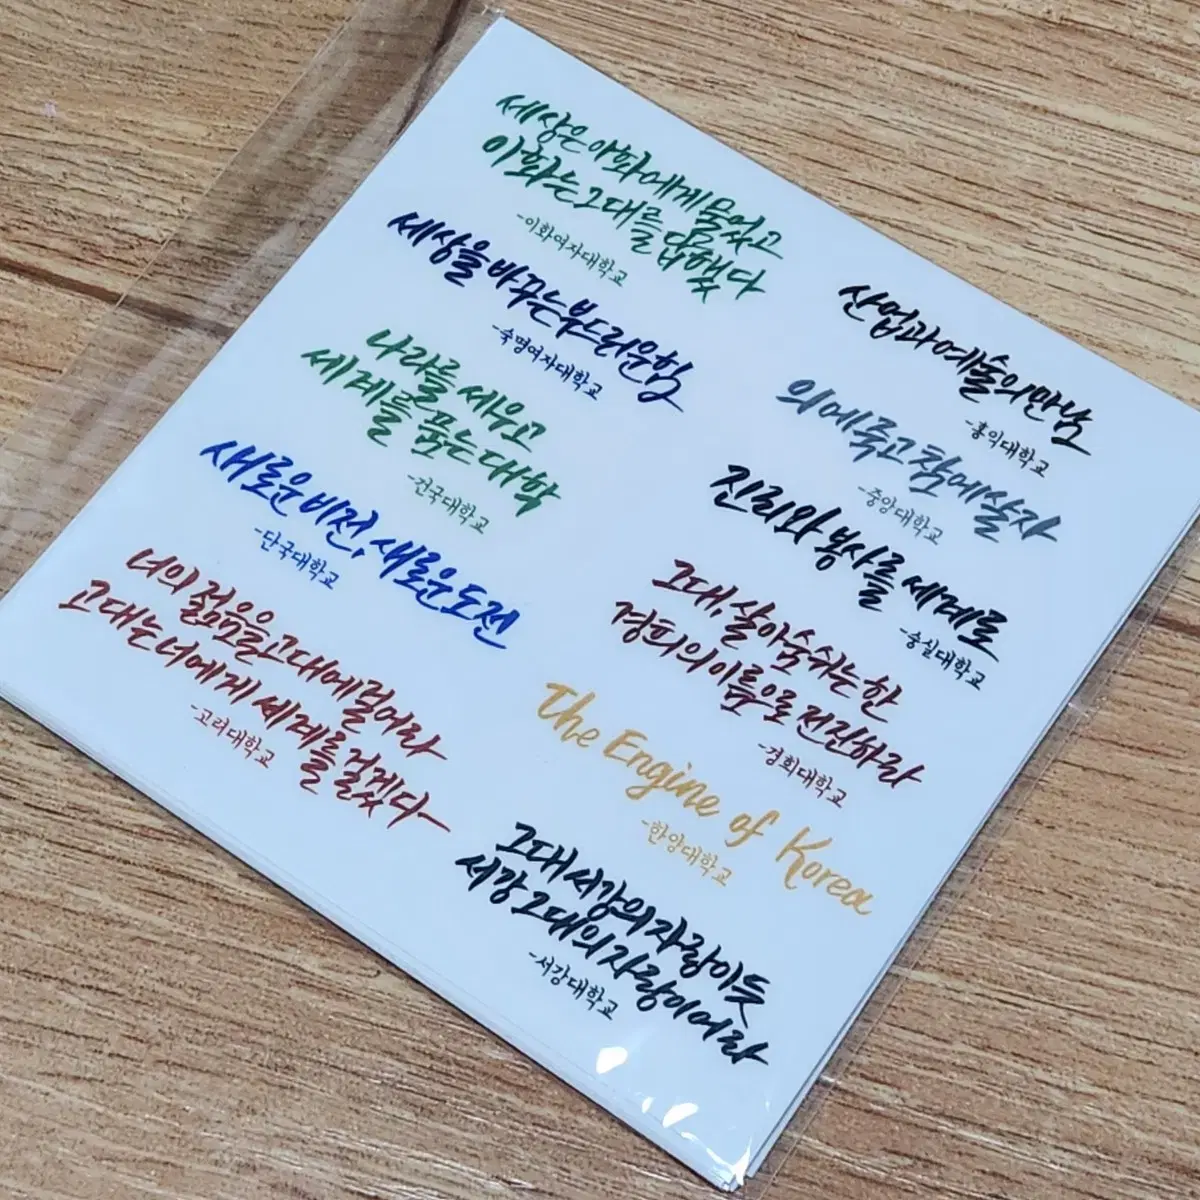 세상은 이화에게 물었고
이화는 그대를 답했다
-이화여자대학교
세상을 바꾸는 부드러운 힘
-숙명여자대학교
나라를 세우고
세계를 품는 대학
-건국대학교
새로운 비전, 새로운 도전
-단국대학교
너의 젊음을 고대에 걸어라
고대는 너에게 세계를 걸겠다
-고려대학교
산업과 예술의 만남
-홍익대학교
의에 죽고 참에 살자
-중앙대학교
진리와 봉사를 세계로
-숭실대학교
그대, 살아 숨쉬는 한
경희의 이름으로 전진하라
-경희대학교
The Engine of Korea
-한양대학교
그대 서강의 자랑이듯
서강 그대의 자랑이어라
-서강대학교